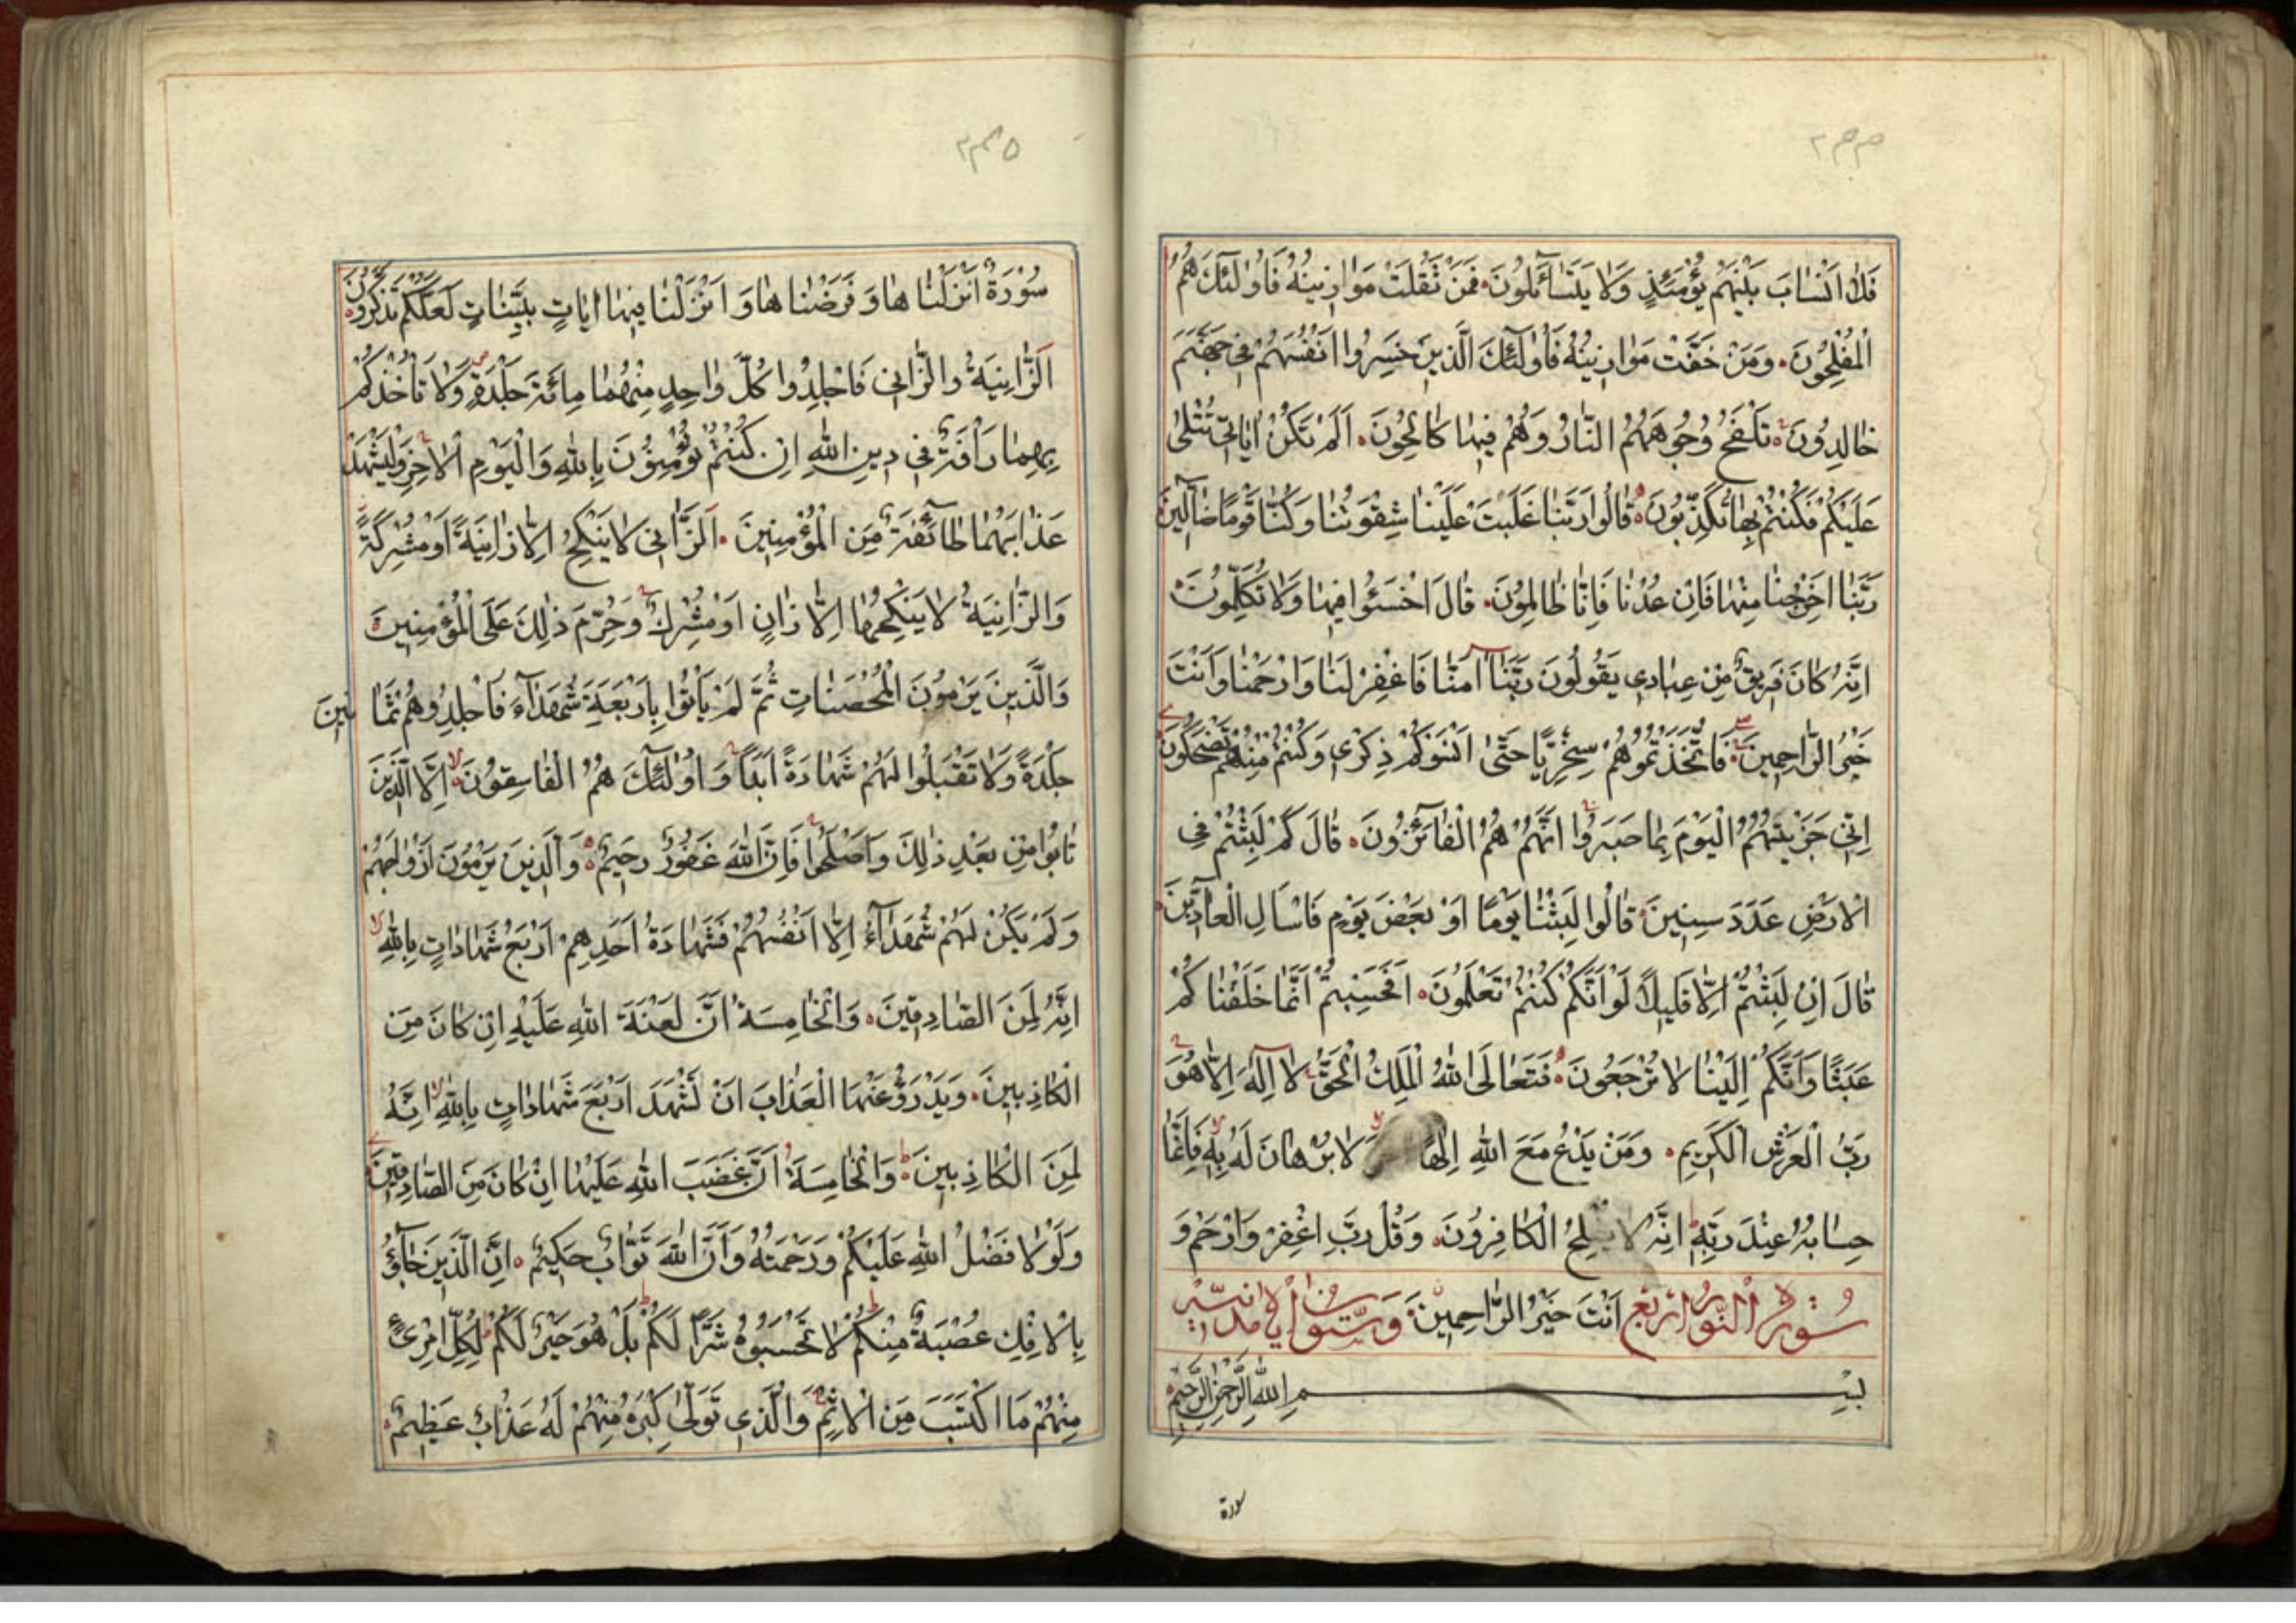 ۲۴۴
فَلٰا اَنْسٰابَ بَيْنَهُمْ يَوْمَئِذٍ وَلٰا يَتَسٰآئَلُونَ فَمَنْ ثَقُلَتْ مَوٰازِينُهُ فَاُولٰئِكَ هُمُ
الْمُفْلِحُونَ وَمَنْ خَفَّتْ مَوٰازِينُهُ فَاُولٰئِكَ الَّذِينَ خَسِرُوا اَنْفُسَهُمْ فِي جَهَنَّمَ
خٰالِدُونَ تَلْفَحُ وُجُوهَهُمُ النّٰارُ وَهُمْ فِيهٰا كٰالِحُونَ اَلَمْ تَكُنْ اٰيٰاتِي تُتْلىٰ
عَلَيْكُمْ فَكُنْتُمْ بِهٰا تُكَذِّبُونَ قٰالُوا رَبَّنٰا غَلَبَتْ عَلَيْنٰا شِقْوَتُنٰا وَكُنّٰا قَوْمًا ضٰآلِّينَ
رَبَّنٰا اَخْرِجْنٰا مِنْهٰا فَاِنْ عُدْنٰا فَاِنّٰا ظٰالِمُونَ قٰالَ اخْسَئُوا فِيهٰا وَلٰا تُكَلِّمُونَ
اِنَّهُ كٰانَ فَرِيقٌ مِنْ عِبٰادِي يَقُولُونَ رَبَّنٰا اٰمَنّٰا فَاغْفِرْ لَنٰا وَارْحَمْنٰا وَاَنْتَ
خَيْرُ الرّٰاحِمِينَ فَاتَّخَذْتُمُوهُمْ سِخْرِيًّا حَتّٰى اَنْسَوْكُمْ ذِكْرِي وَكُنْتُمْ مِنْهُمْ تَضْحَكُونَ
اِنِّي جَزَيْتُهُمُ الْيَوْمَ بِمٰا صَبَرُوا اَنَّهُمْ هُمُ الْفٰآئِزُونَ قٰالَ كَمْ لَبِثْتُمْ فِي
الْاَرْضِ عَدَدَ سِنِينَ قٰالُوا لَبِثْنٰا يَوْمًا اَوْ بَعْضَ يَوْمٍ فَاسْاَلِ الْعٰادِّينَ
قٰالَ اِنْ لَبِثْتُمْ اِلّٰا قَلِيلًا لَوْ اَنَّكُمْ كُنْتُمْ تَعْلَمُونَ اَفَحَسِبْتُمْ اَنَّمٰا خَلَقْنٰاكُمْ
عَبَثًا وَاَنَّكُمْ اِلَيْنٰا لٰا تُرْجَعُونَ فَتَعٰالَى اللّٰهُ الْمَلِكُ الْحَقُّ لٰا اِلٰهَ اِلّٰا هُوَ
رَبُّ الْعَرْشِ الْكَرِيمِ وَمَنْ يَدْعُ مَعَ اللّٰهِ اِلٰهًا لٰا بُرْهٰانَ لَهُ بِهِ فَاِنَّمٰا
حِسٰابُهُ عِنْدَ رَبِّهِ اِنَّهُ لٰا يُفْلِحُ الْكٰافِرُونَ وَقُلْ رَبِّ اغْفِرْ وَارْحَمْ وَ
اَنْتَ خَيْرُ الرّٰاحِمِينَ
سُورَةُ النُّورِ اَرْبَع وَسِتُّونَ
بِسْمِ اللّٰهِ الرَّحْمٰنِ الرَّحِيمِ
سورة
۲۴۵
سُورَةٌ اَنْزَلْنٰاهٰا وَفَرَضْنٰاهٰا وَاَنْزَلْنٰا فِيهٰا اٰيٰاتٍ بَيِّنٰاتٍ لَعَلَّكُمْ تَذَكَّرُونَ
اَلزّٰانِيَةُ وَالزّٰانِي فَاجْلِدُوا كُلَّ وٰاحِدٍ مِنْهُمٰا مِائَةَ جَلْدَةٍ وَلٰا تَاْخُذْكُمْ
بِهِمٰا رَاْفَةٌ فِي دِينِ اللّٰهِ اِنْ كُنْتُمْ تُؤْمِنُونَ بِاللّٰهِ وَالْيَوْمِ الْاٰخِرِ وَلْيَشْهَدْ
عَذٰابَهُمٰا طٰآئِفَةٌ مِنَ الْمُؤْمِنِينَ اَلزّٰانِي لٰا يَنْكِحُ اِلّٰا زٰانِيَةً اَوْ مُشْرِكَةً
وَالزّٰانِيَةُ لٰا يَنْكِحُهٰا اِلّٰا زٰانٍ اَوْ مُشْرِكٌ وَحُرِّمَ ذٰلِكَ عَلَى الْمُؤْمِنِينَ
وَالَّذِينَ يَرْمُونَ الْمُحْصَنٰاتِ ثُمَّ لَمْ يَاْتُوا بِاَرْبَعَةِ شُهَدٰآءَ فَاجْلِدُوهُمْ ثَمٰانِينَ
جَلْدَةً وَلٰا تَقْبَلُوا لَهُمْ شَهٰادَةً اَبَدًا وَاُولٰئِكَ هُمُ الْفٰاسِقُونَ اِلَّا الَّذِينَ
تٰابُوا مِنْ بَعْدِ ذٰلِكَ وَاَصْلَحُوا فَاِنَّ اللّٰهَ غَفُورٌ رَحِيمٌ وَالَّذِينَ يَرْمُونَ اَزْوٰاجَهُمْ
وَلَمْ يَكُنْ لَهُمْ شُهَدٰآءُ اِلّٰا اَنْفُسُهُمْ فَشَهٰادَةُ اَحَدِهِمْ اَرْبَعُ شَهٰادٰاتٍ بِاللّٰهِ
اِنَّهُ لَمِنَ الصّٰادِقِينَ وَالْخٰامِسَةُ اَنَّ لَعْنَةَ اللّٰهِ عَلَيْهِ اِنْ كٰانَ مِنَ
الْكٰاذِبِينَ وَيَدْرَؤُ عَنْهَا الْعَذٰابَ اَنْ تَشْهَدَ اَرْبَعَ شَهٰادٰاتٍ بِاللّٰهِ اِنَّهُ
لَمِنَ الْكٰاذِبِينَ وَالْخٰامِسَةَ اَنَّ غَضَبَ اللّٰهِ عَلَيْهٰا اِنْ كٰانَ مِنَ الصّٰادِقِينَ
وَلَوْلٰا فَضْلُ اللّٰهِ عَلَيْكُمْ وَرَحْمَتُهُ وَاَنَّ اللّٰهَ تَوّٰابٌ حَكِيمٌ اِنَّ الَّذِينَ جٰآؤُ
بِالْاِفْكِ عُصْبَةٌ مِنْكُمْ لٰا تَحْسَبُوهُ شَرًّا لَكُمْ بَلْ هُوَ خَيْرٌ لَكُمْ لِكُلِّ امْرِئٍ
مِنْهُمْ مَا اكْتَسَبَ مِنَ الْاِثْمِ وَالَّذِي تَوَلّٰى كِبْرَهُ مِنْهُمْ لَهُ عَذٰابٌ عَظِيمٌ